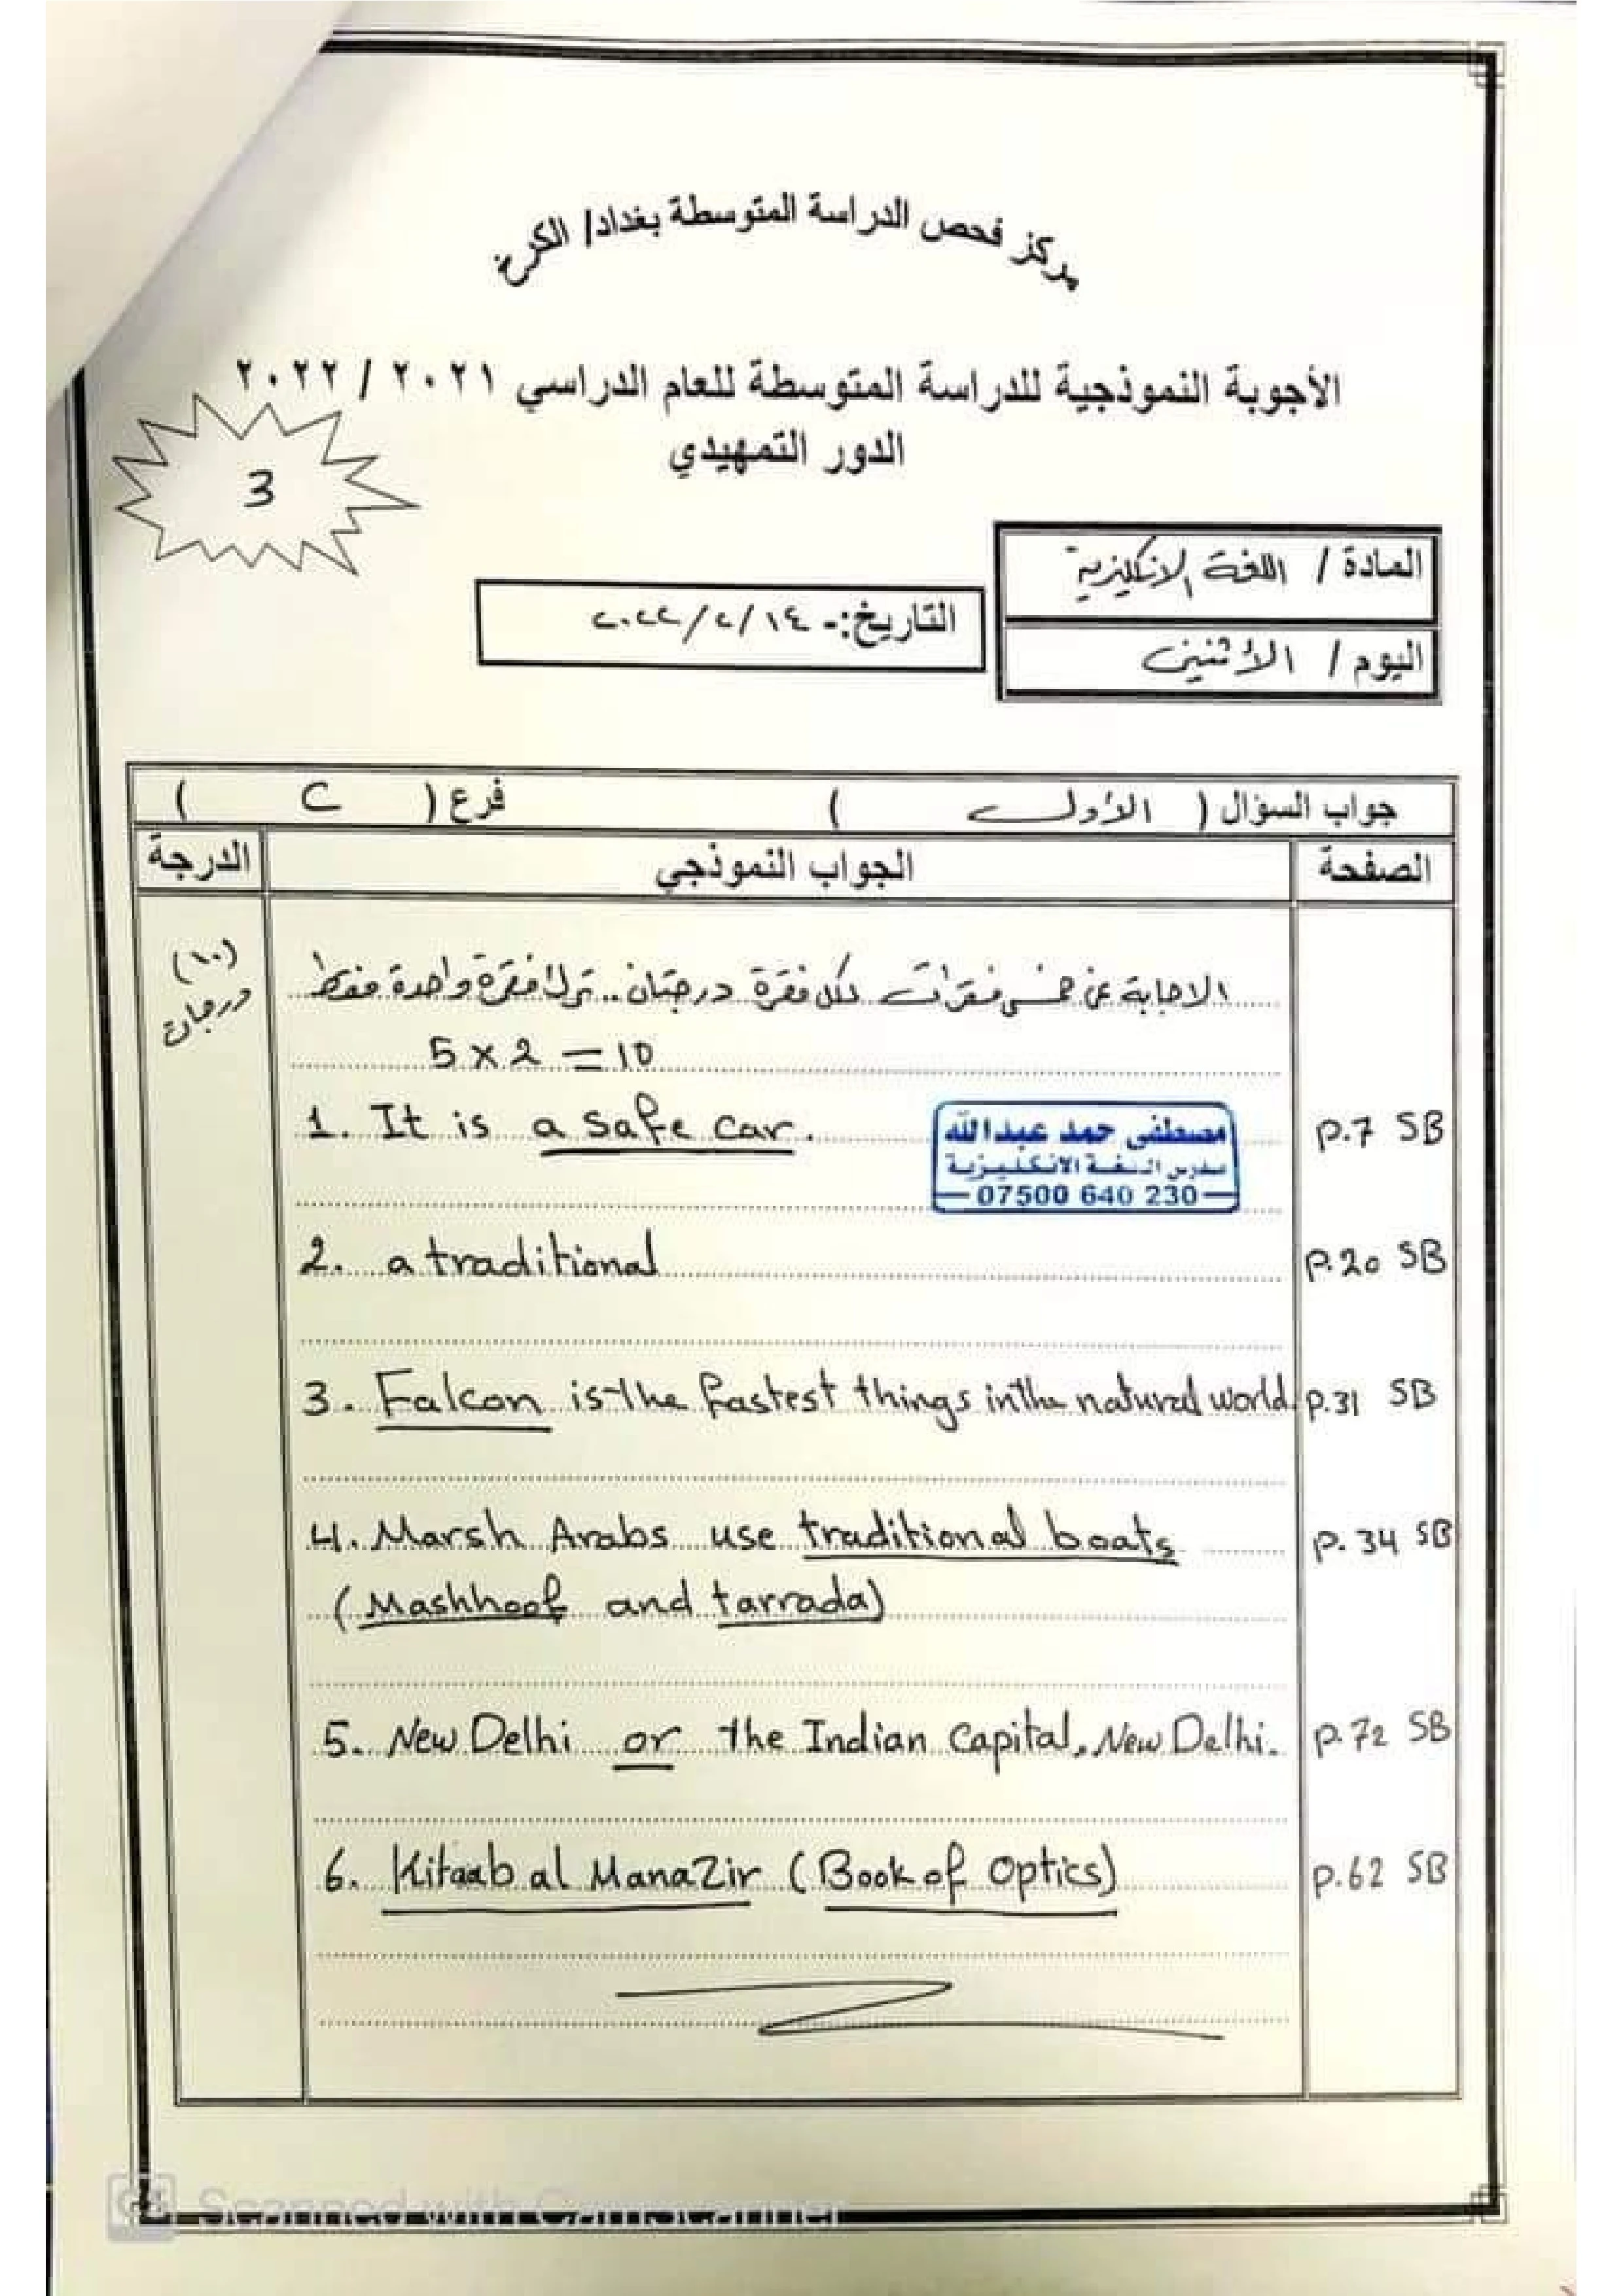 مركز فحص الدراسة المتوسطة بغداد/ الكرخ
الأجوبة النموذجية للدراسة المتوسطة للعام الدراسي ٢٠٢١ / ٢٠٢٢
الدور التمهيدي
3
المادة / اللغة الانكليزية
التاريخ:- ١٤/٢/٢٠٢٢
اليوم / الأثنين
جواب السؤال ( الأول ) فرع ( C )
الصفحة الجواب النموذجي الدرجة
(١٠)
درجات
الاجابة عن خمس فقرات لكل فقرة درجتان.. ترك فقرة واحدة فقط
5 x 2 = 10
1. It is a safe car. p.7 SB
مصطفى حمد عبدالله
مدرس اللغة الانكليزية
07500 640 230
2. a traditional p.20 SB
3. Falcon is the fastest things in the natural world. p.31 SB
4. Marsh Arabs use traditional boats p. 34 SB
(Mashhoof and tarrada)
5. New Delhi or the Indian Capital, New Delhi. p.72 SB
6. Kitaab al Manazir (Book of Optics) p.62 SB
Scanned with CamScanner